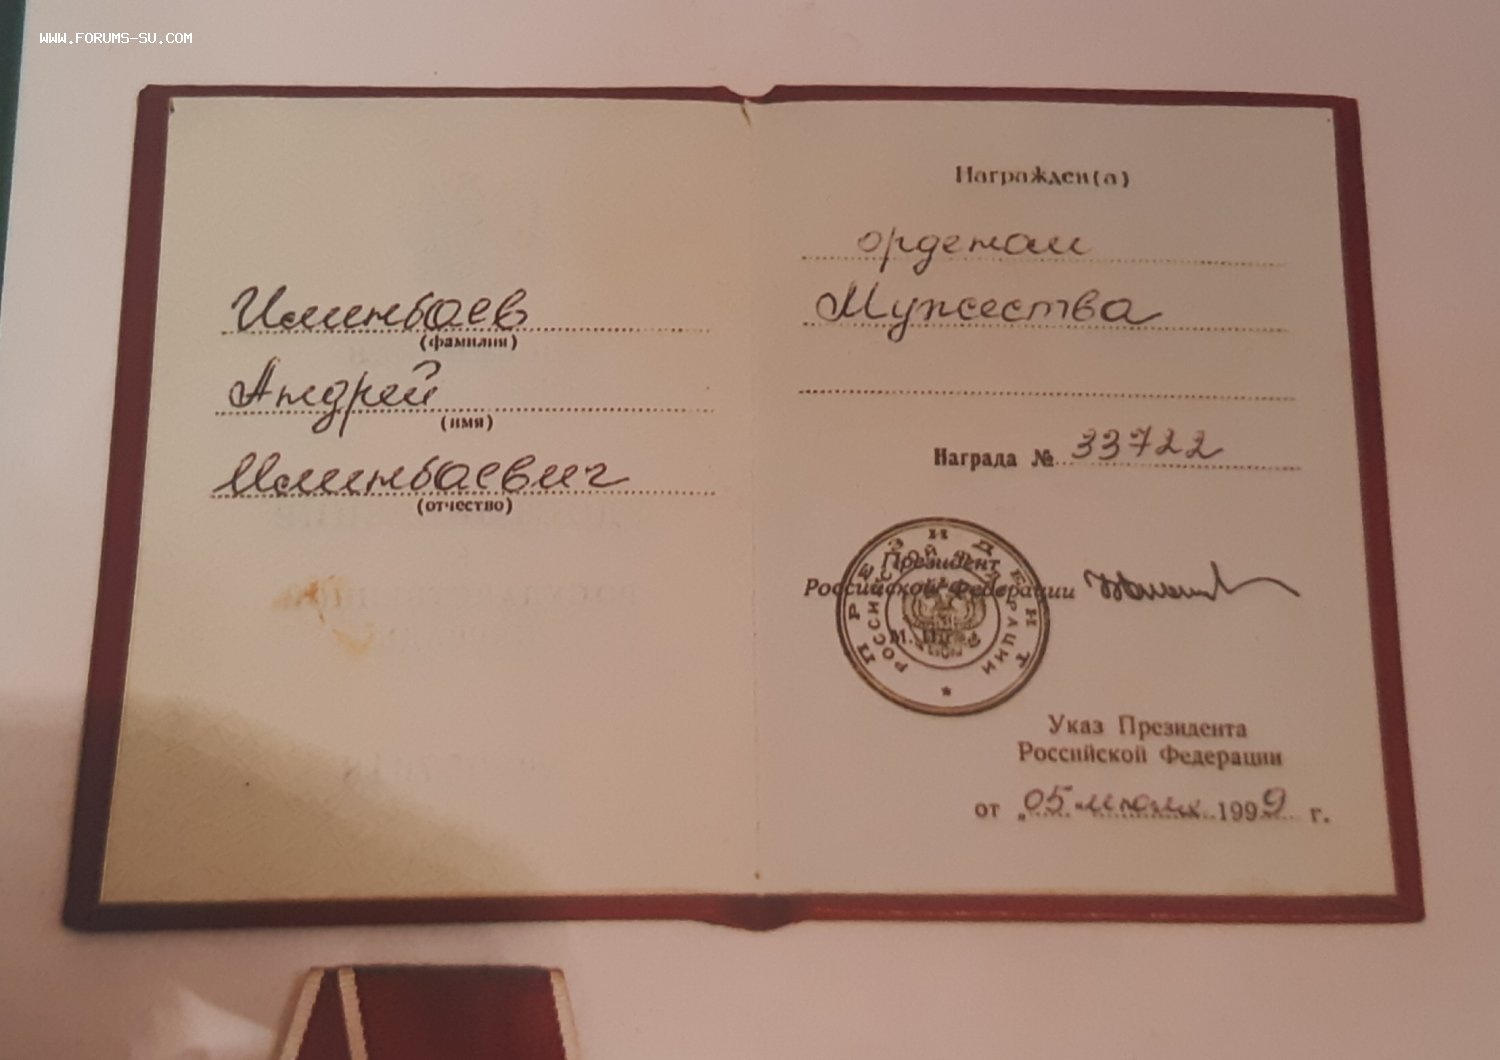 WWW.FORUMS-SU.COM
Иминбаев
(фамилия)
Андрей
(имя)
Иминбаевич
(отчество)
Награжден(а)
орденом
Мужества
Награда № 33722
ПРЕЗИДЕНТ
РОССИЙСКОЙ ФЕДЕРАЦИИ
Президент
Российской Федерации
М. П.
Указ Президента
Российской Федерации
от „05“ июля 1999 г.